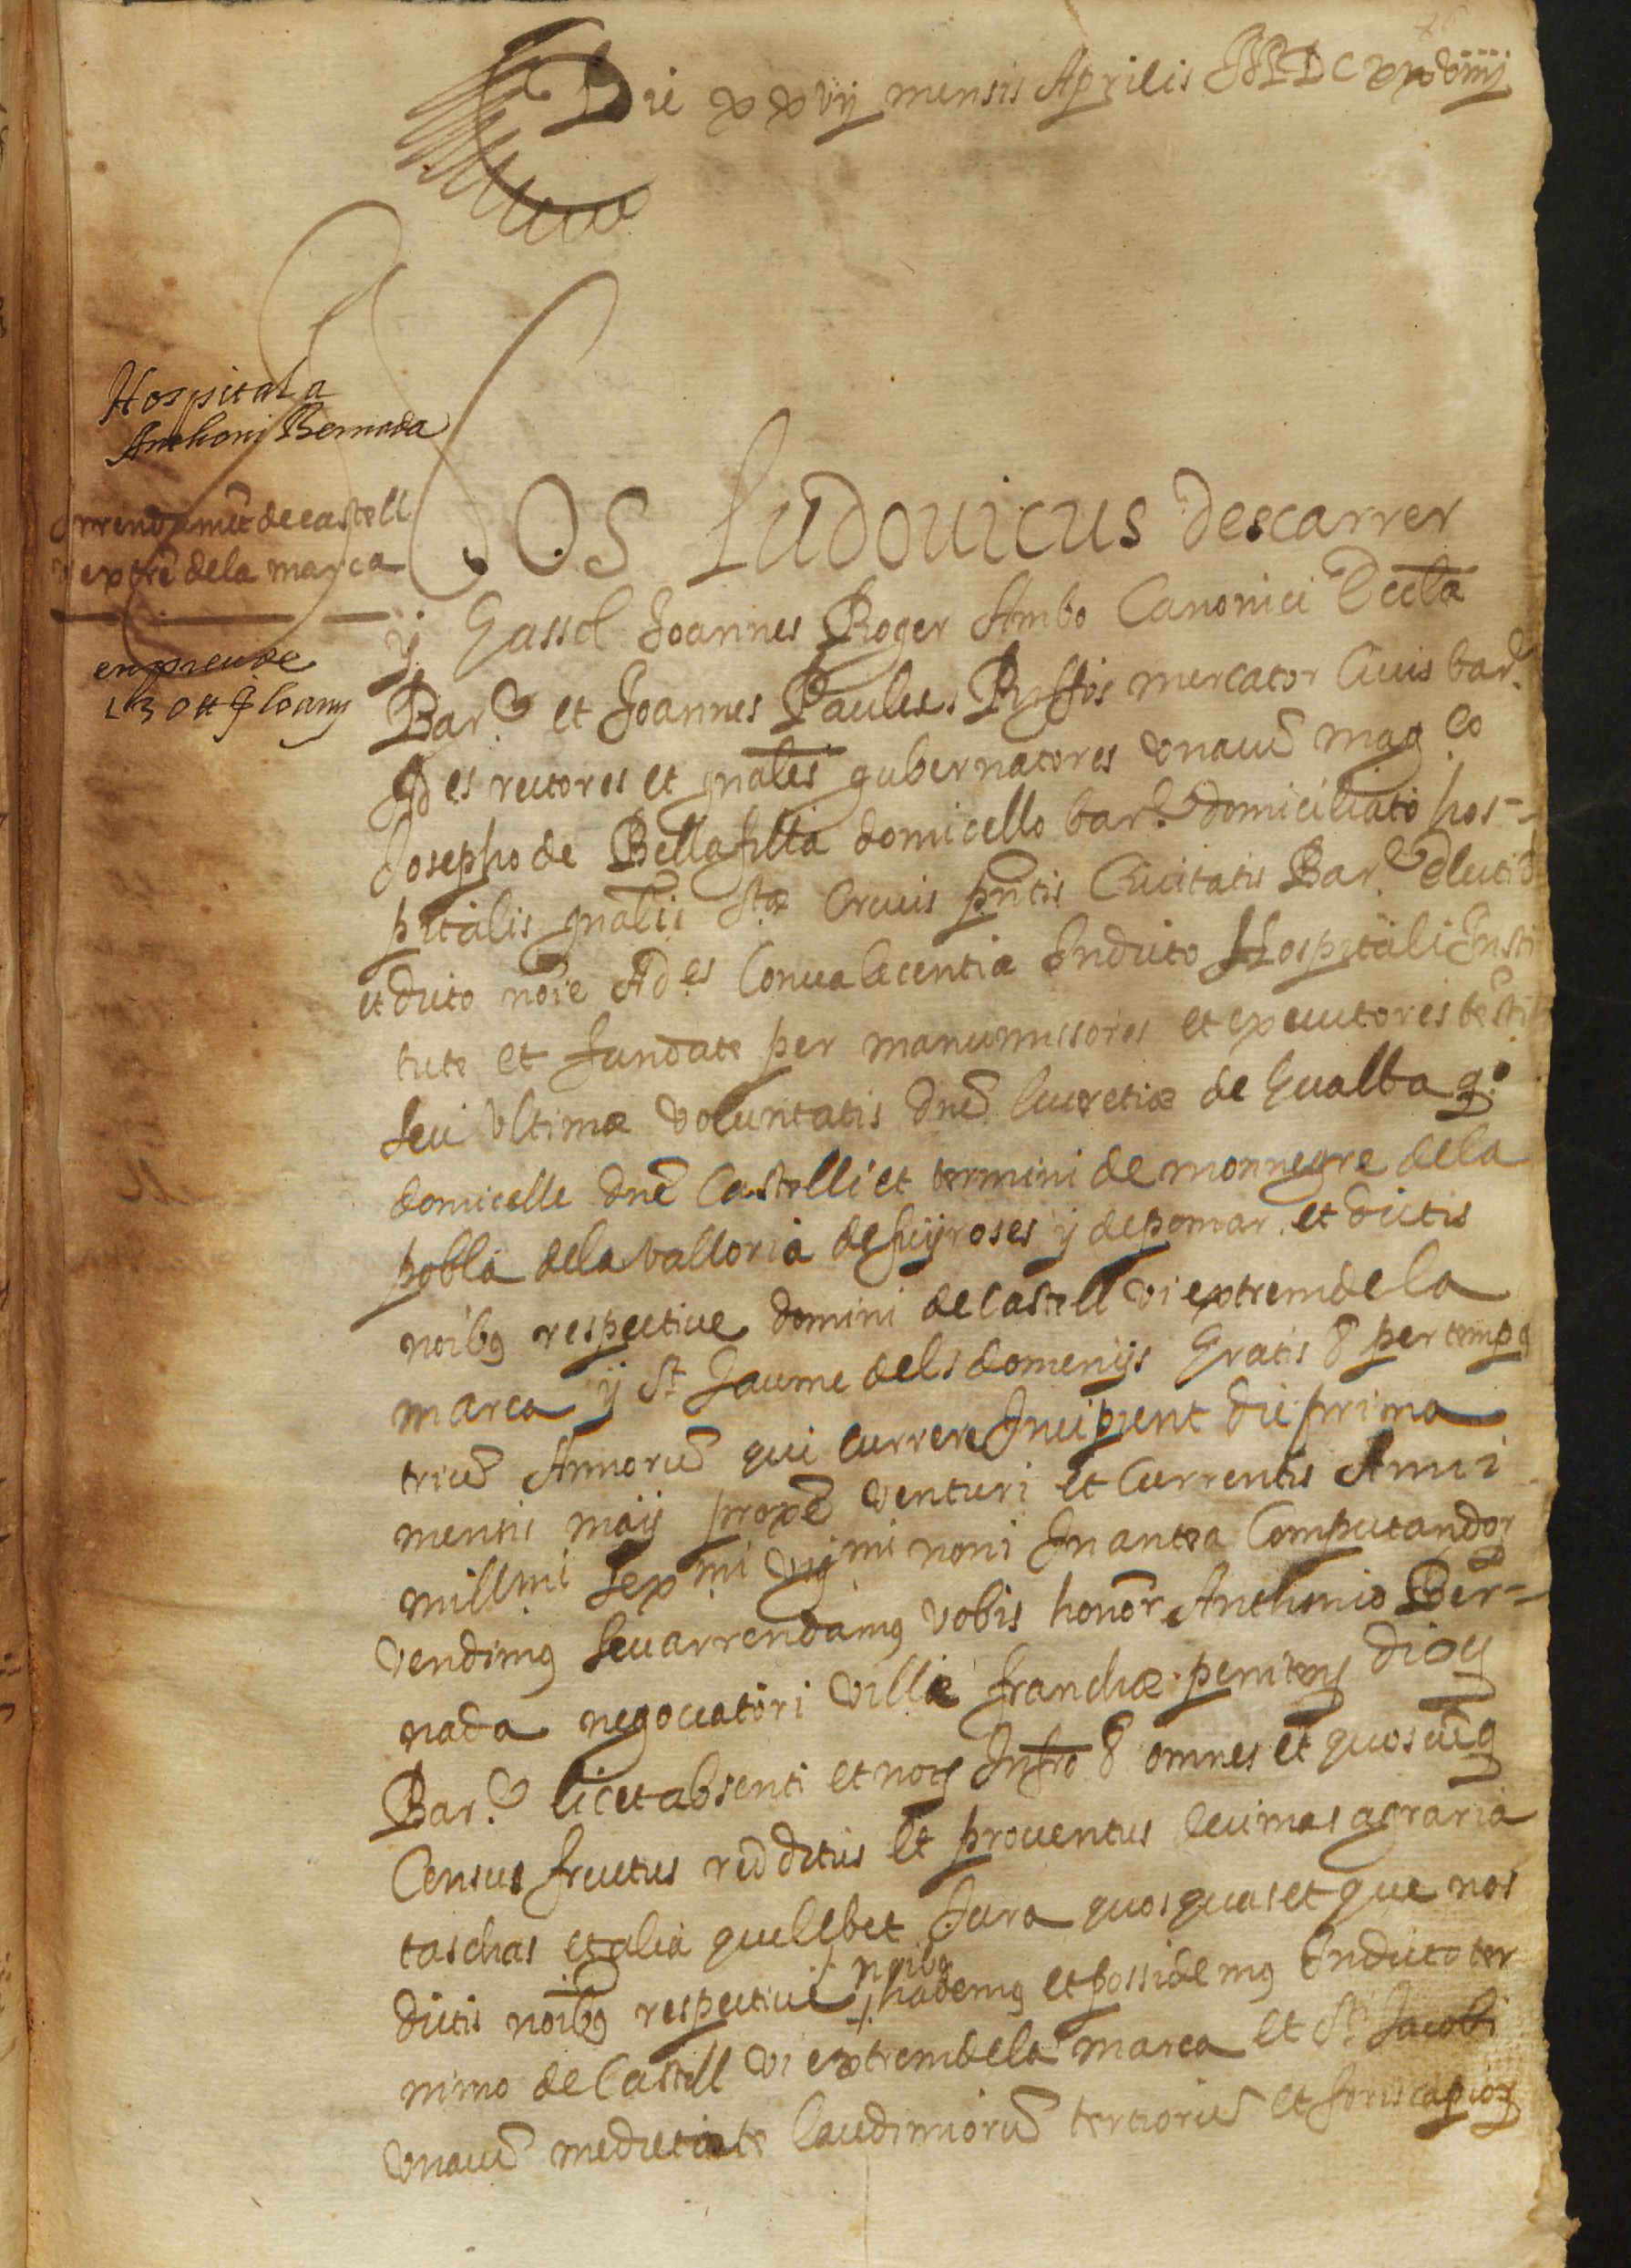 Die xxvij mensis Aprilis MDCxxviiij
Hospital a
Anthoni Bernada
Arrendamēt de castell
vi extrē dela marca
en preu de
Nos Ludovicus Descarrer
y Gassol Joannes Roger Ambo Canonici Eccłæ
Bar.e et Joannes Paules mercator Civis bar.e
Ad.es rectores et gnāles gubernatores unacū mag.co
Josepho de Bellafilla domicello bar.e domiciliato hos-
pitalis gnālis Stæ Crucis pn̄tis Civitatis Bar.e
et dicto noīe Ad.es Convalecentiæ In dicto Hospitali Insti
tute et fundate per manumissores et executores testi
seu Ultimæ voluntatis dnē lucretiæ de Gualba q.o
domicelle dnē Castelli et termini de monnegre dela
pobla dela valloria de fuyroses y de pomar et dictis
noibꝰ respective domini de Castell vi extrem de la
marca y St Jaume dels domenys Gratis & per tempꝰ
triū Annorū qui currere Incipient die prima
mensis maij proxē venturi et Currentis Anni
millmi sexmi vigmi noni In antea Computandor
Vendimꝰ seu arrendamꝰ vobis honor Anthonio Ber-
nada negociatori villæ franchæ peniten̄ dioc̄
Bar.e licet absenti et not.s Infro & omnes et quoscūq
Census fructus redditus et proventus decimas agraria
taschas et alia quelibet Jura quos quas et que nos
dictis noibꝰ respective noibꝰ habemꝰ et possidemꝰ In dicto ter
mino de Castell vi extrem dela marca et St Jacobi
unacū medietate laudimiorū tertiorū et foriscapioꝝ